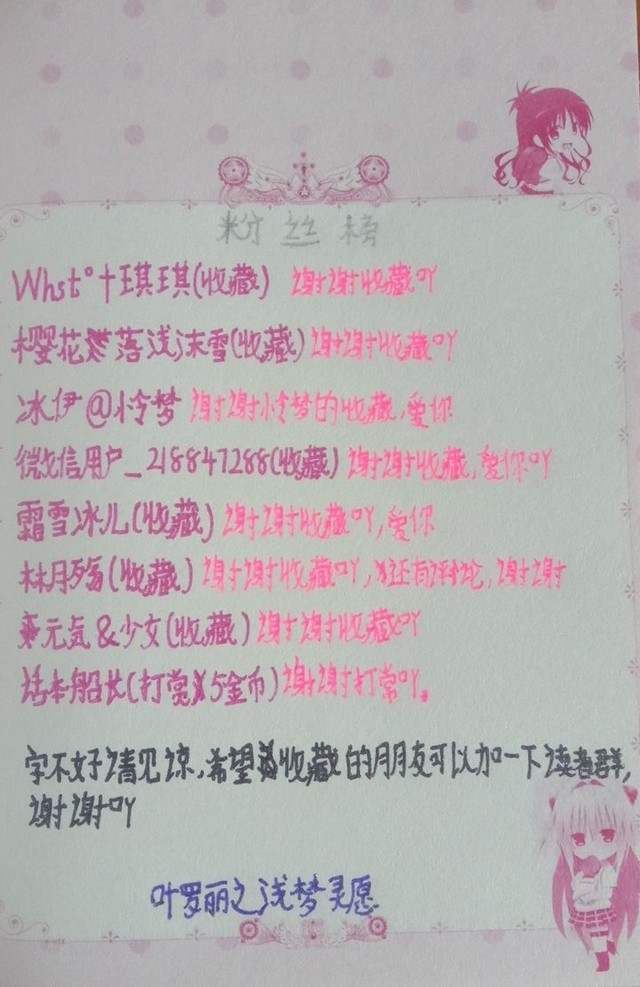 粉丝榜
Whst°十琪琪(收藏) 谢谢收藏吖
樱花落浅沫雪(收藏)谢谢收藏吖
冰伊@怜梦 谢谢怜梦的收藏,爱你
微信用户_218847288(收藏)谢谢收藏,爱你吖
霜雪冰儿(收藏)谢谢收藏吖,爱你
林月殇(收藏)谢谢收藏吖,还有评论,谢谢
元気&少女(收藏)谢谢收藏吖
话本船长(打赏5金币)谢谢打赏吖。
字不好请见谅,希望收藏的朋友可以加一下读者群,
谢谢吖
叶罗丽之浅梦灵愿